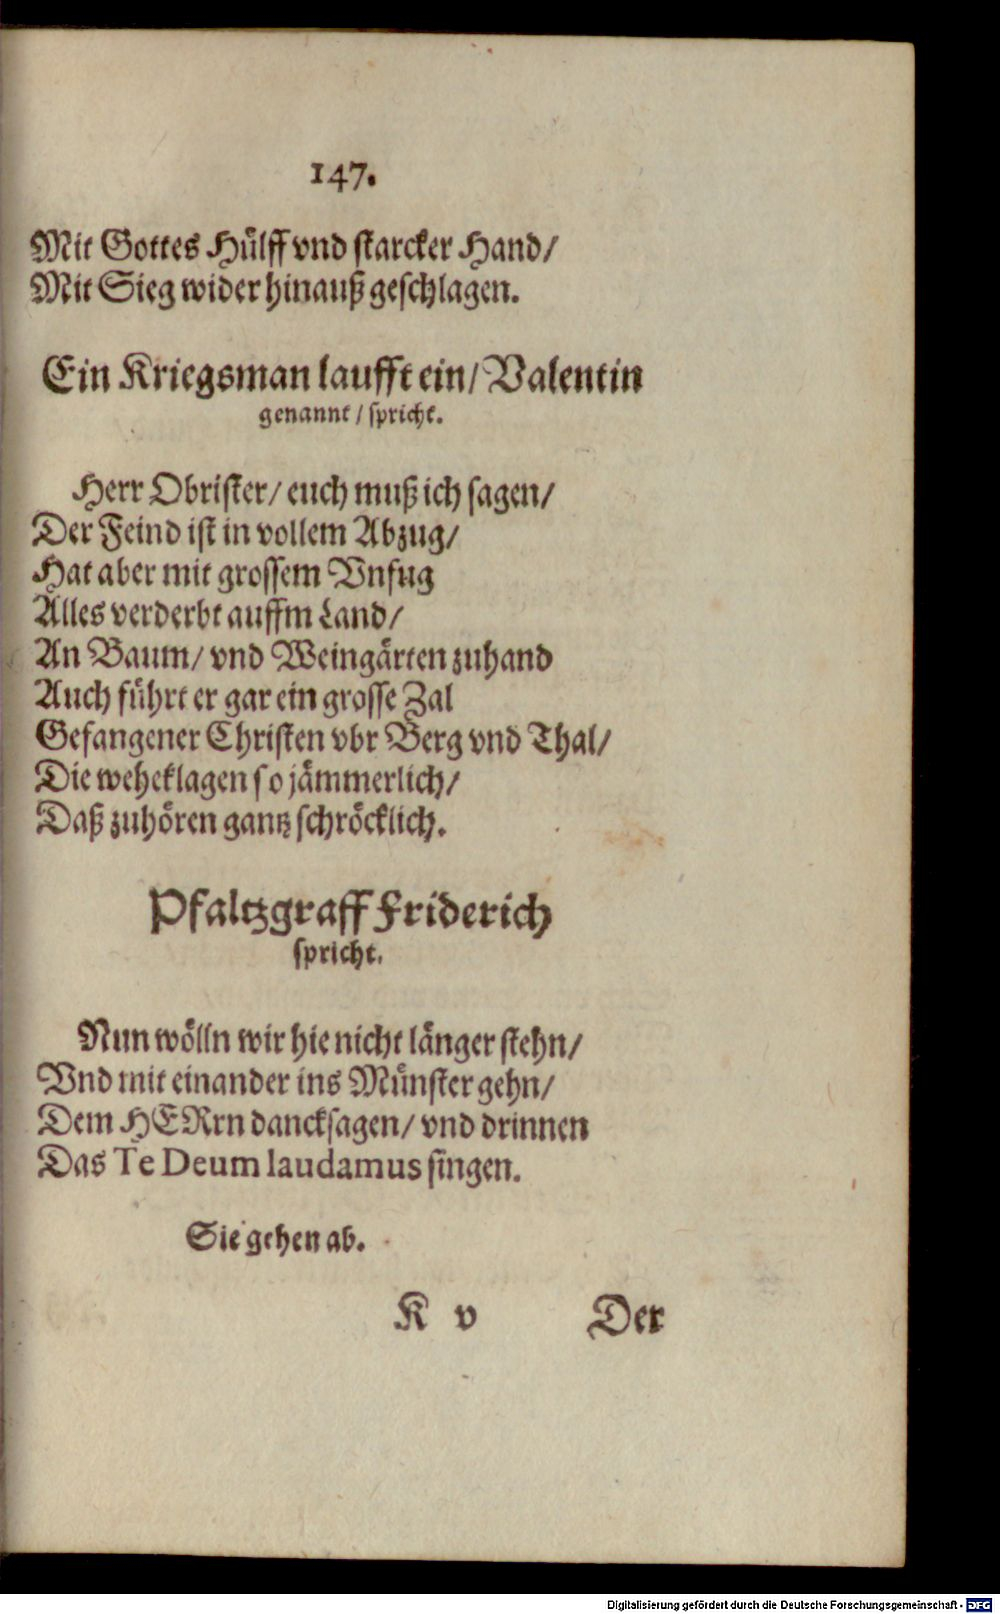 147.
Mit Gottes Hülff vnd starcker Hand/
Mit Sieg wider hinauß geschlagen.
Ein Kriegsman laufft ein/ Valentin
genannt/ spricht.
Herr Obrister/ euch muß ich sagen/
Der Feind ist in vollem Abzug/
Hat aber mit grossem Vnfug
Alles verderbt auffm Land/
An Baum/ vnd Weingärten zuhand
Auch führt er gar ein grosse Zal
Gefangener Christen vbr Berg vnd Thal/
Die weheklagen so jämmerlich/
Daß zuhören gantz schröcklich.
Pfaltzgraff Friderich
spricht.
Nun wölln wir hie nicht länger stehn/
Vnd mit einander ins Münster gehn/
Dem HERrn dancksagen/ vnd drinnen
Das Te Deum laudamus singen.
Sie gehen ab.
K v Der
Digitalisierung gefördert durch die Deutsche Forschungsgemeinschaft - DFG